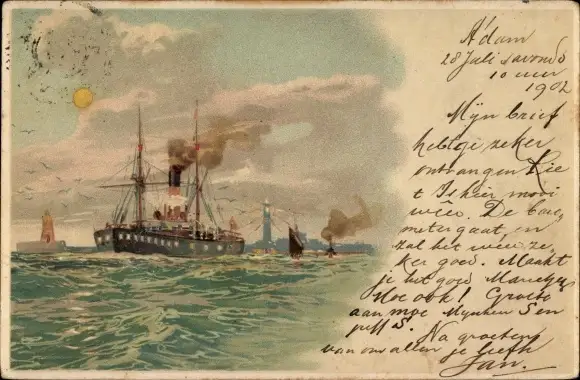 A'dam
28 Juli savonds
10 uur
1902
Mijn brief
hebt ge zeker
ontvangen Lie
t Is hier mooi
weêr. De baro
meter gaat en
zal het weer ze
ker goed. Maakt
je het goed
Hoe ook! Groete
aan moe Mijnheer S en
juff S. Na groeten
van ons allen je liefh
Jan.